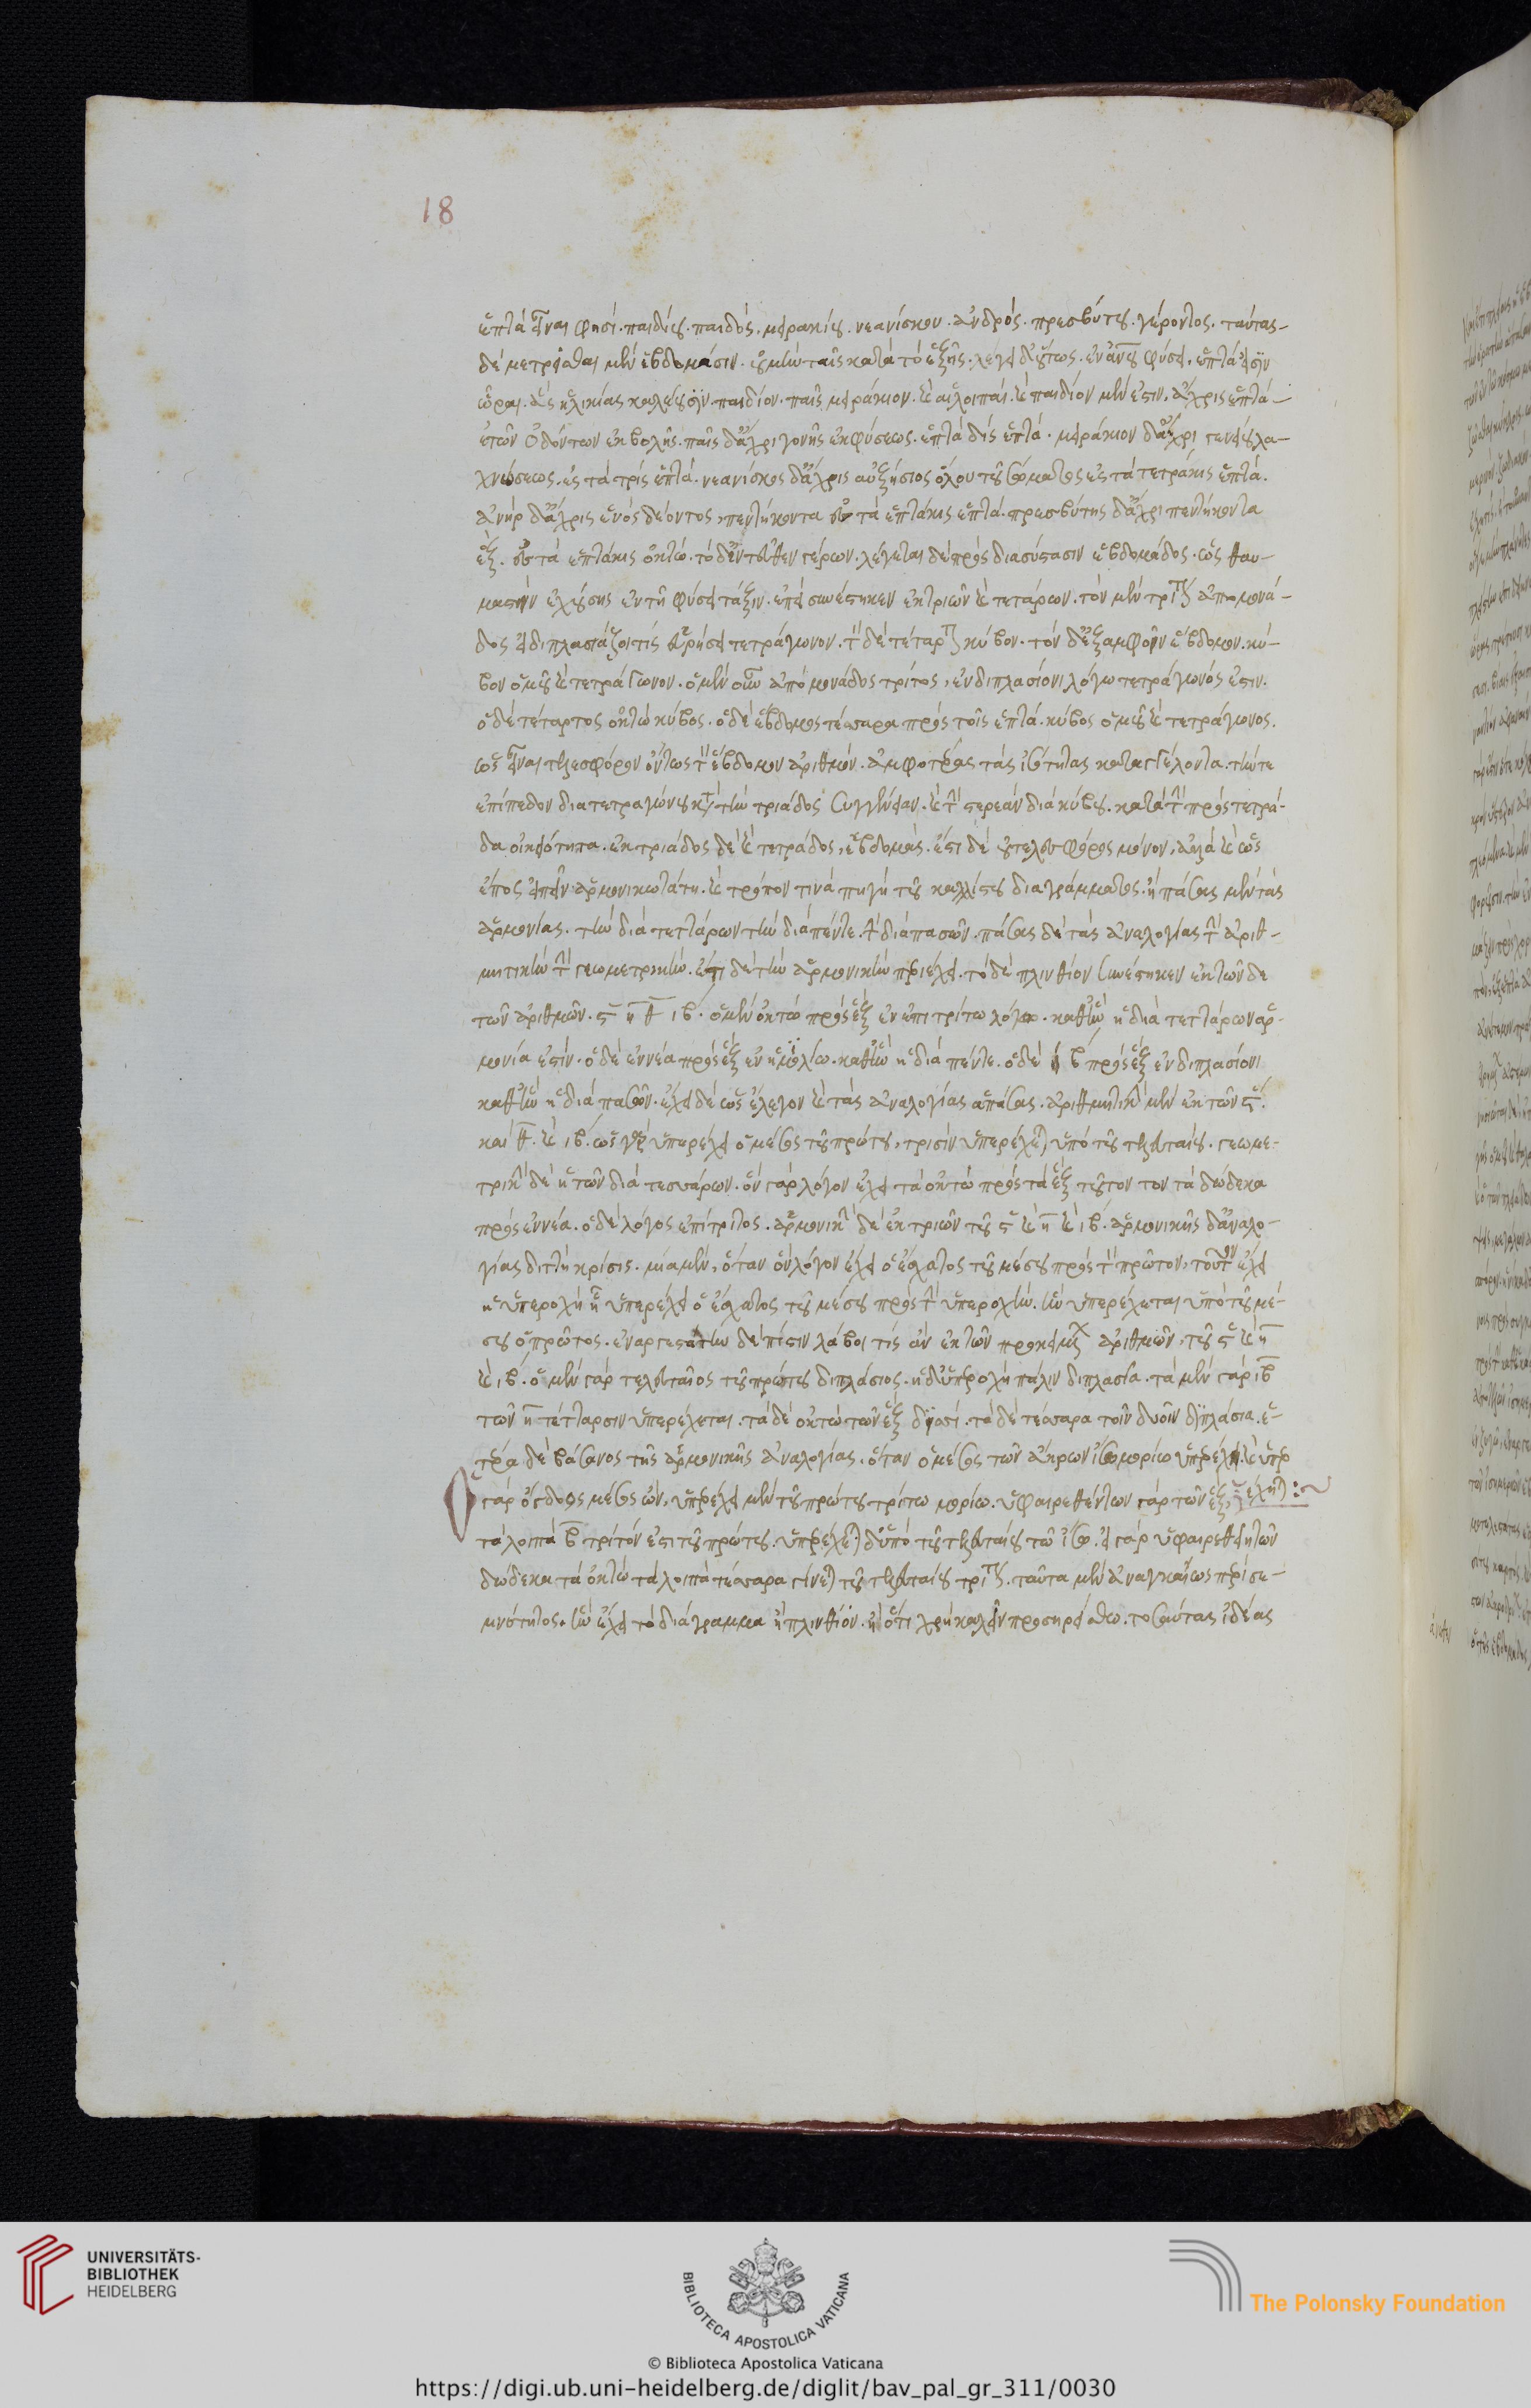 18
ἑπτὰ εἶναι φησί· παιδίου· παιδός· μειρακίου· νεανίσκου· ἀνδρός· πρεσβύτου· γέροντος· ταύτας-
δὲ μετρεῖσθαι μὲν ἑβδομάσιν· οὐ μὴν ταῖς κατὰ τὸ ἑξῆς· λέγει δ' οὕτως· ἐν ἀνου φύσει, ἑπτά εἰσιν
ὧραι· ἃς ἡλικίας καλέουσιν· παιδίον· παῖς μειράκιον· καὶ αἱ λοιπαί· καὶ παιδίον μέν ἐστιν, ἄχρις ἑπτὰ-
ἐτῶν ὀδόντων ἐκβολῆς· παῖς δ' ἄχρι γονῆς ἐκφύσεως· ἑπτὰ δὶς ἑπτά· μειράκιον δ' ἄχρι γενείου λα-
χνώσεως· ἐς τὰ τρὶς ἑπτά· νεανίσκος δ' ἄχρις αὐξήσιος ὅλου τοῦ σώματος ἐς τὰ τετράκις ἑπτά·
ἀνὴρ δ' ἄχρις ἑνὸς δέοντος, πεντήκοντα ἐς τὰ ἑπτάκις ἑπτά· πρεσβύτης δ' ἄχρι πεντήκοντα
ἕξ· ἐς τὰ ἑπτάκις ὀκτώ· τὸ δ' ἐντεῦθεν γέρων· λέγεται δὲ πρὸς διασύστασιν ἑβδομάδος· ὡς θαυ-
μαστὴν ἐχούσης ἐν τῇ φύσει τάξιν· ἐπεὶ συνέστηκεν ἐκ τριῶν καὶ τετάρων· τὸν μὲν τρίτον ἀπὸ μονά-
δος εἰ διπλασιάζοι τίς εὑρήσει τετράγωνον· τὸν δὲ τέταρτον κύβον· τὸν δ' ἐξ ἀμφοῖν ἕβδομον· κύ-
βον ὁμοῦ καὶ τετράγωνον· ὁ μὲν οὖν ἀπὸ μονάδος τρίτος, ἐν διπλασίονι λόγω τετράγωνός ἐστιν·
ὁ δὲ τέταρτος ὀκτὼ κύβος· ὁ δὲ ἕβδομος τέσσαρα πρὸς τοῖς ἑπτά· κύβος ὁμοῦ καὶ τετράγωνος·
ὡς εἶναι τελεσφόρον ὄντως τὸν ἕβδομον ἀριθμόν· ἀμφοτέρας τὰς ἰσότητας καταγγέλοντα· τήν τε
ἐπίπεδον διὰ τετραγώνου κατὰ τὴν τριάδος συγγένειαν· καὶ τὴν στερεὰν διὰ κύβου· κατὰ τὴν πρὸς τετρά-
δα οἰκειότητα· ἐκ τριάδος δὲ καὶ τετράδος, ἑβδομάς· ἔστι δὲ οὐ τελεσφόρος μόνον, ἀλλὰ καὶ ὡς
ἔπος εἰπεῖν ἁρμονικωτάτη· καὶ τρόπον τινὰ πηγὴ τοῦ καλλίστου διαγράμματος· ἢ πάσας μὲν τὰς
ἁρμονίας· τὴν διὰ τεττάρων τὴν διὰ πέντε· τὴν διὰ πασῶν· πάσας δὲ τὰς ἀναλογίας τὴν ἀριθ-
μητικὴν τὴν γεωμετρικήν· ἔτι δὲ τὴν ἁρμονικὴν περιέχει· τὸ δὲ πλινθίον συνέστηκεν ἐκ τῶνδε
τῶν ἀριθμῶν· ϛ η θ ιβ· ὁ μὲν ὀκτὼ πρὸς ἓξ ἐν ἐπιτρίτω λόγω· καθ' ἣν ἡ διὰ τεττάρων ἁρ-
μονία ἐστίν· ὁ δὲ ἐννέα πρὸς ἓξ ἐν ἡμιολίω· καθ' ἣν ἡ διὰ πέντε· ὁ δὲ ιβ πρὸς ἓξ ἐν διπλασίονι
καθ' ἣν ἡ διὰ πασῶν· ἔχει δὲ ὡς ἔλεγον καὶ τὰς ἀναλογίας ἁπάσας· ἀριθμητικὴν μὲν ἐκ τῶν ϛ·
καὶ θ· καὶ ιβ· ὡς γὰρ ὑπερέχει ὁ μέσος τοῦ πρώτου, τρισὶν ὑπερέχεται ὑπὸ τοῦ τελευταίου· γεωμε-
τρικὴν δὲ ἡ τῶν διὰ τεσσάρων· ὃν γὰρ λόγον ἔχει τὰ ὀκτὼ πρὸς τὰ ἓξ τοῦτον τον τὰ δώδεκα
πρὸς ἐννέα· ὁ δὲ λόγος ἐπίτριτος· ἁρμονικὴν δὲ ἐκ τριῶν τοῦ ϛ καὶ η καὶ ιβ· ἁρμονικῆς δ' ἀναλο-
γίας διττὴ κρίσις· μία μὲν, ὅταν ὃν λόγον ἔχει ὁ ἔσχατος τοῦ μέσου πρὸς τὸν πρῶτον, τοῦτον ἔχει
ἡ ὑπεροχὴ ᾗ ὑπερέχει ὁ ἔσχατος τοῦ μέσου πρὸς τὴν ὑπεροχήν· ἣν ὑπερέχεται ὑπὸ τοῦ μέ-
σου ὁ πρῶτος· ἐναργεστάτην δὲ πίστιν λάβοι τίς ἂν ἐκ τῶν προκειμένων ἀριθμῶν, τοῦ ϛ καὶ η
καὶ ιβ· ὁ μὲν γὰρ τελευταῖος τοῦ πρώτου διπλάσιος· ἡ δ' ὑπεροχὴ πάλιν διπλασία· τὰ μὲν γὰρ ιβ
τῶν η τέτταρσιν ὑπερέχεται· τὰ δὲ ὀκτὼ τῶν ἓξ δυσί· τὰ δὲ τέσσαρα τοῖν δυοῖν διπλάσια· ἑ-
τέρα δὲ βάσανος τῆς ἁρμονικῆς ἀναλογίας· ὅταν ὁ μέσος τῶν ἄκρων ἰσομορίω ὑπερέχει· καὶ ὑπερ
έχηται :~
Ὁ γὰρ ὄγδοος μέσος ὢν, ὑπερέχει μὲν τοῦ πρώτου τρίτω μορίω· ὑφαιρεθέντων γὰρ τῶν ἓξ,
τὰ λοιπὰ β τρίτόν ἐστι τοῦ πρώτου· ὑπερέχεται δ' ὑπὸ τοῦ τελευταίου τῶ ἴσω· εἰ γὰρ ὑφαιρεθείη τῶν
δώδεκα τὰ ὀκτὼ τὰ λοιπὰ τέσσαρα γίνεται τοῦ τελευταίου τρίτον· ταῦτα μὲν ἀναγκαίως περὶ σε-
μνότητος, ἣν ἔχει τὸ διάγραμμα ἢ πλινθίον· ἢ ὅτι χρὴ καλεῖν προσηρείσθω· τοσαύτας ἰδέας
UNIVERSITÄTS-
BIBLIOTHEK
HEIDELBERG
BIBLIOTECA APOSTOLICA VATICANA
The Polonsky Foundation
© Biblioteca Apostolica Vaticana
https://digi.ub.uni-heidelberg.de/diglit/bav_pal_gr_311/0030